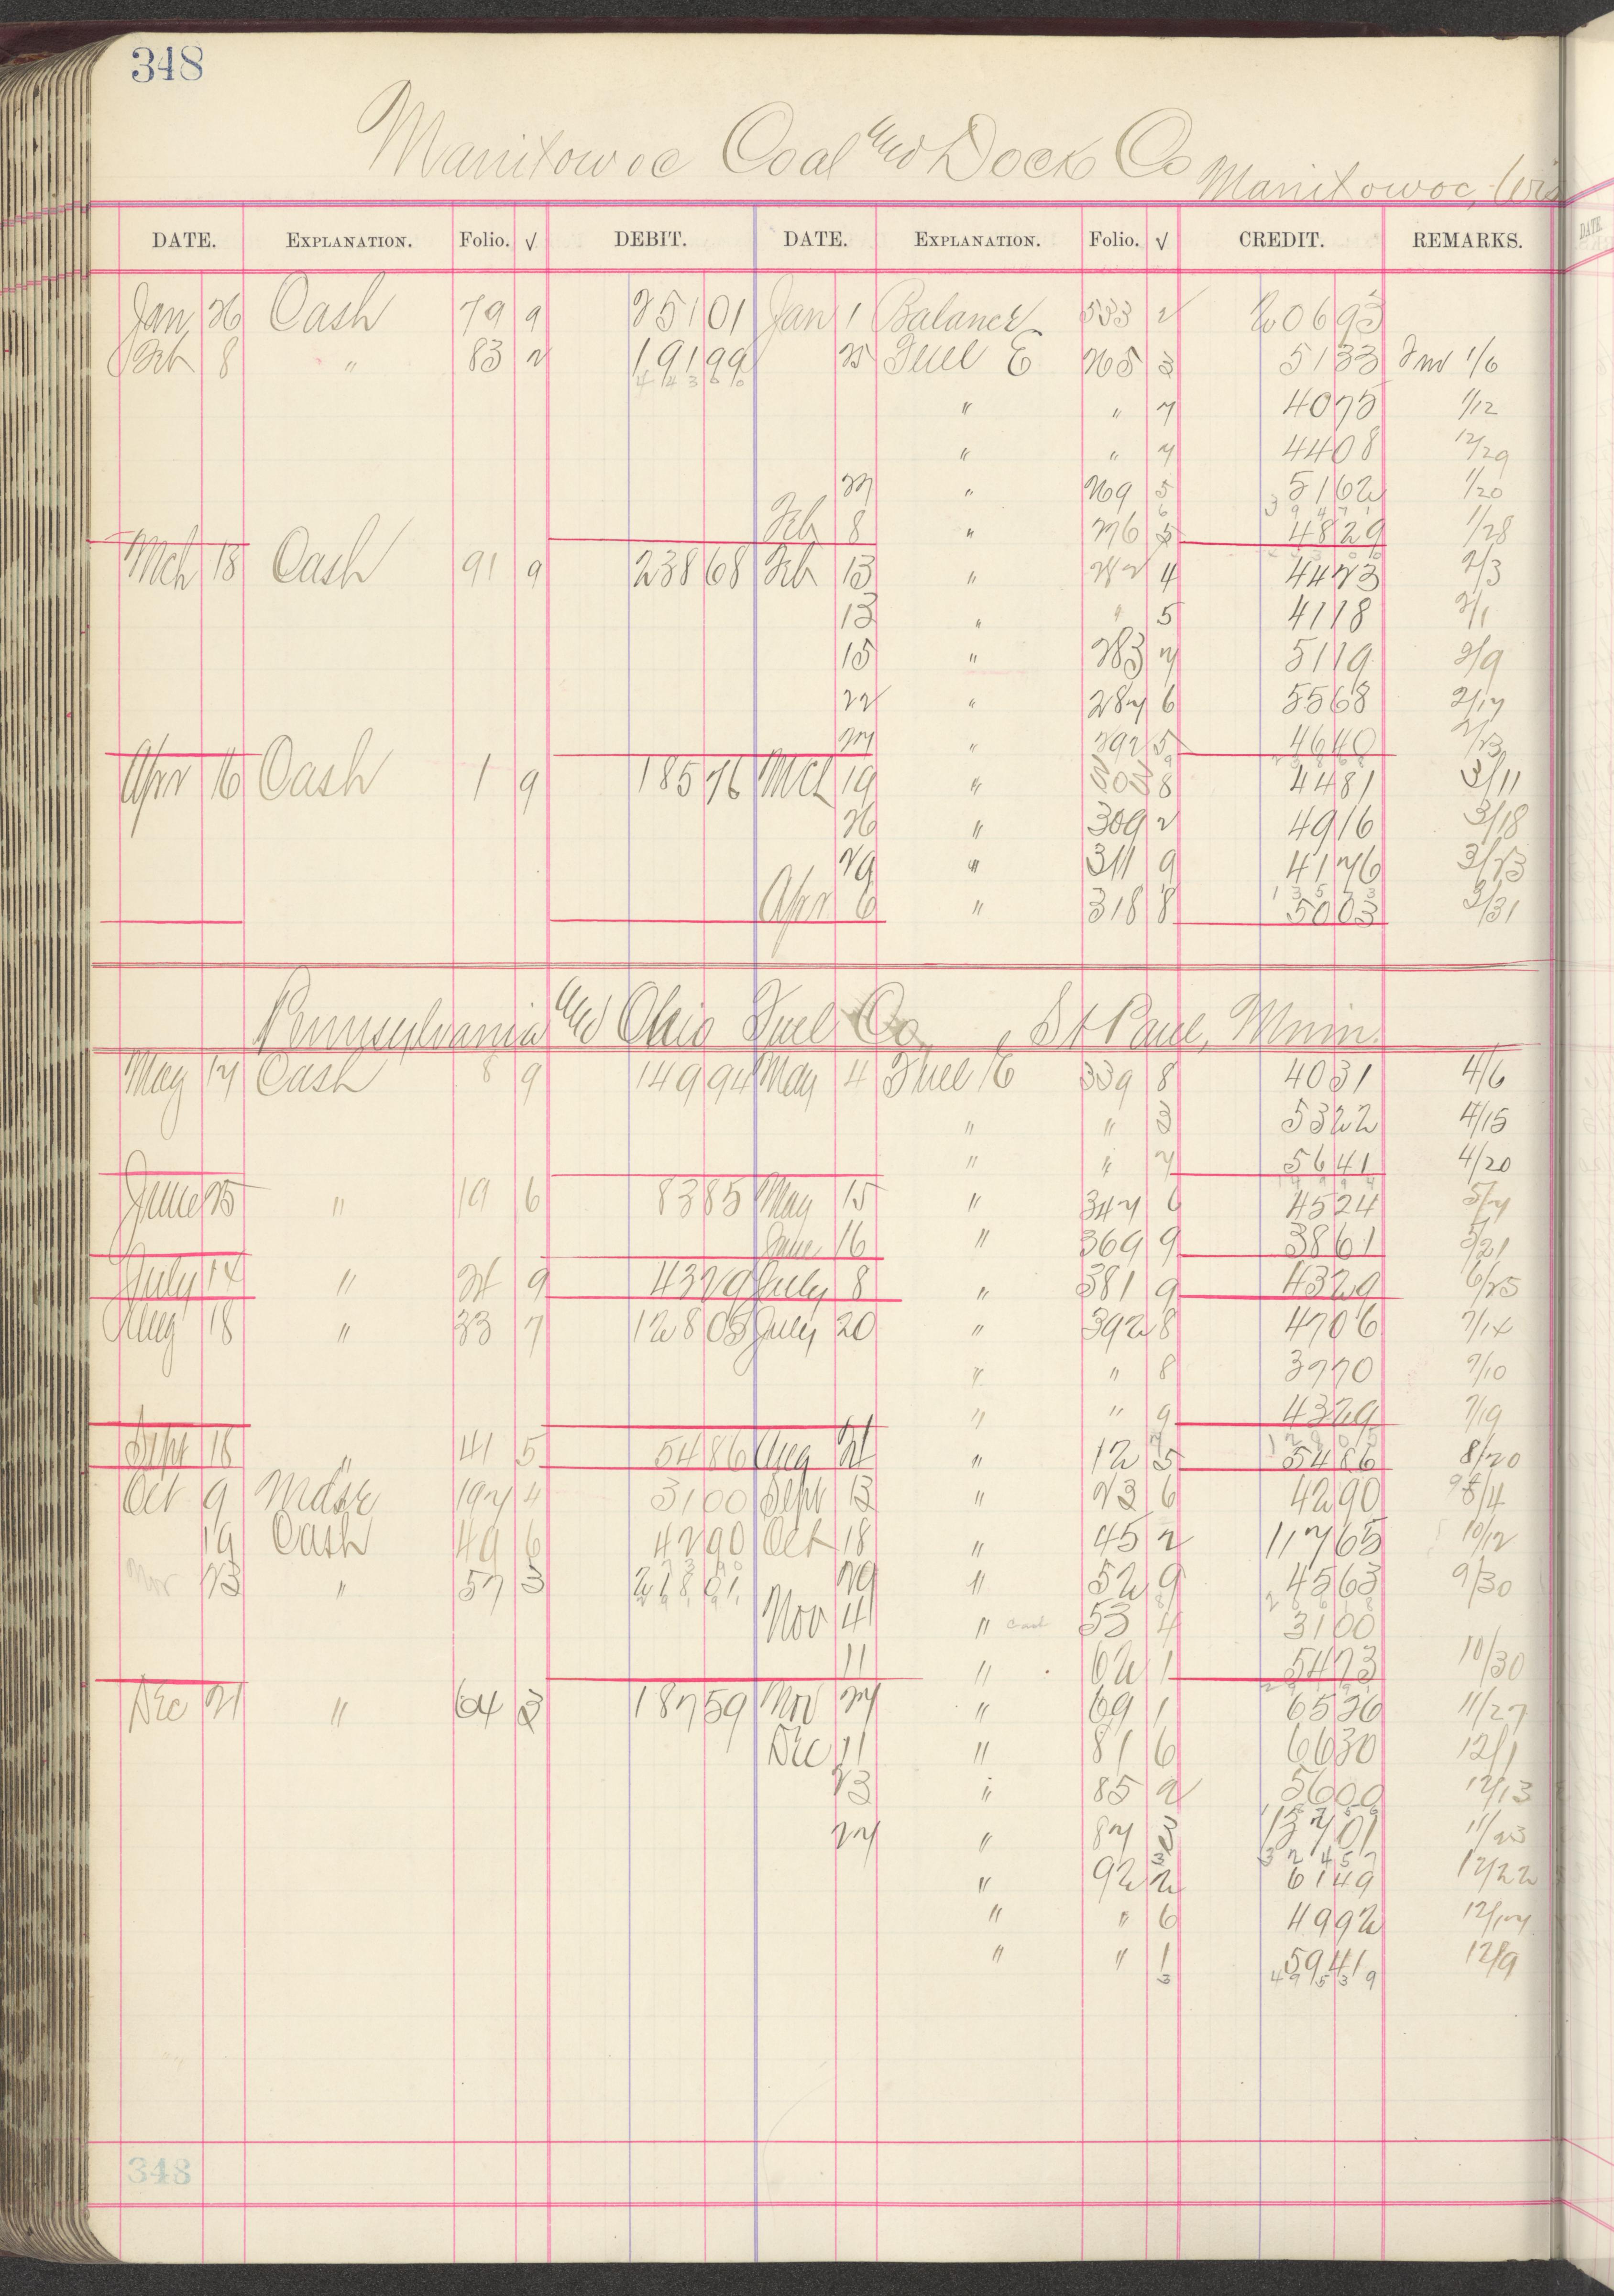 348
Manitowoc Coal and Dock Co Manitowoc, Wis
DATE. EXPLANATION. Folio. √ DEBIT. DATE. EXPLANATION. Folio. √ CREDIT. REMARKS.
Jan 26 Cash 79 9 251 01 Jan 1 Balance 533 2 206 93
Feb 8 " 83 2 191 99 25 Fuel E 265 3 51 33 Inv 1/6
443 00
" " 7 40 75 1/12
" " 7 44 08 12/29
27 " 269 5 51 62 1/20
Feb 8 " 276 5 48 29 1/28
Mch 13 Cash 91 9 238 68 Feb 13 " 282 4 44 23 2/3
13 " " 5 41 18 2/1
15 " 283 7 51 19 2/9
22 " 287 6 55 68 2/17
27 " 292 5 46 40 2/23
Apr 16 Cash 1 9 185 76 Mch 19 " 303 8 44 81 3/11
26 " 309 2 49 16 3/18
29 " 311 9 41 76 3/23
Apr 6 " 318 8 50 03 3/31
Pennsylvania and Ohio Fuel Co, St Paul, Minn.
May 17 Cash 8 9 149 94 May 4 Fuel E 339 8 40 31 4/6
" " 3 53 22 4/15
" " 7 56 41 4/20
June 25 " 19 6 83 85 May 15 " 347 6 45 24 5/7
June 16 " 369 9 38 61 5/21
July 14 " 24 9 43 29 July 8 " 381 9 43 29 6/25
Aug 18 " 33 7 128 05 July 20 " 392 8 47 06 7/14
" " 8 37 70 7/10
" " 9 43 29 7/19
Sept 18 " 41 5 54 86 Aug 24 " 12 5 54 86 8/20
Oct 9 Mdse 197 4 31 00 Sept 13 " 23 6 42 90 9/4
19 Cash 49 6 42 90 Oct 18 " 45 2 117 65 10/12
Nov 23 " 57 3 218 01 29 " 52 9 45 63 9/30
Nov 4 " 53 4 31 00
11 " 62 1 54 73 10/30
Dec 21 " 64 3 187 59 Nov 27 " 69 1 65 36 11/27
Dec 11 " 81 6 66 30 12/1
23 " 85 2 56 00 12/13
27 " 87 3 137 01 11/23
" 92 2 61 49 12/22
" " 6 49 92 12/17
" " 1 59 41 12/9
495 39
348